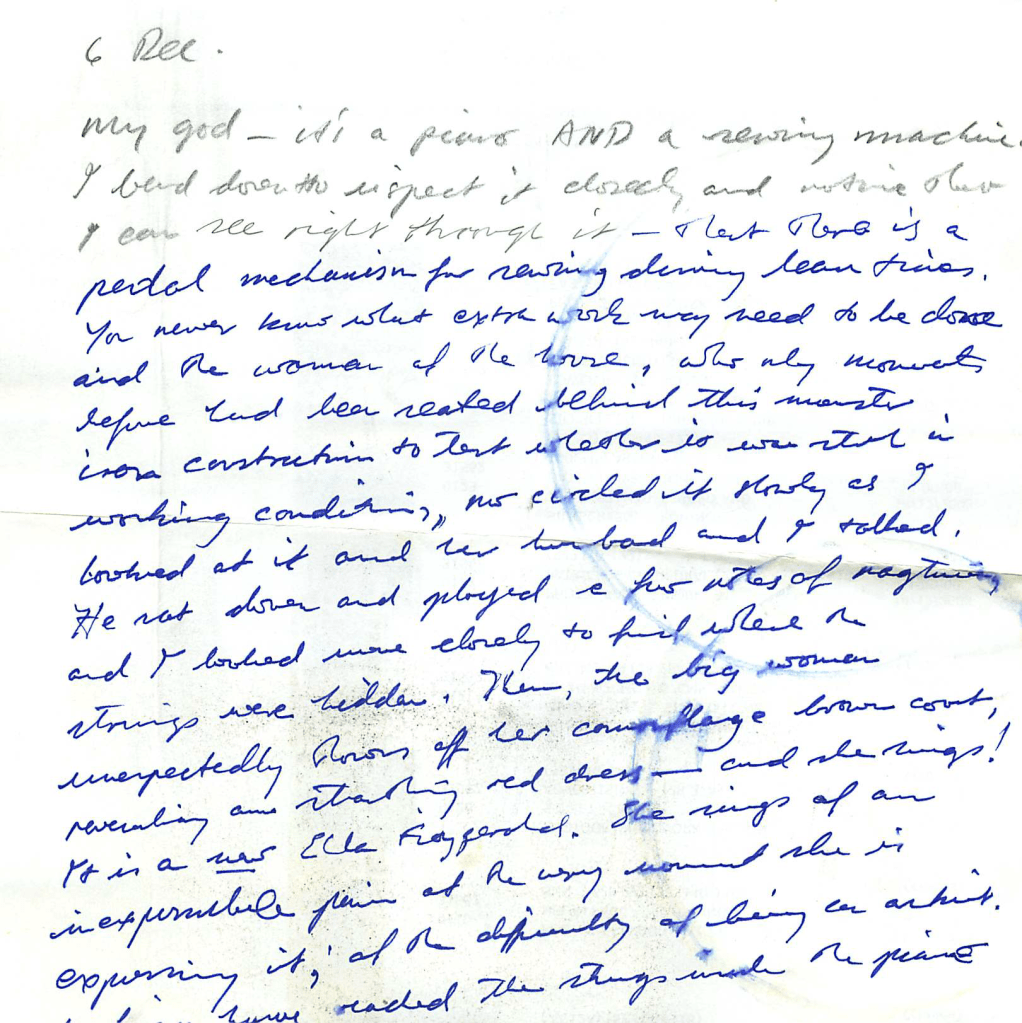 6 Dec.
My god – it's a piano AND a sewing machine.
I bend down to inspect it closely and notice that
I can see right through it – that there is a
pedal mechanism for sewing during lean times.
You never know what extra work may need to be done
and the woman of the house, who only moments
before had been seated behind this monster
construction to test whether it was still in
working condition, now circled it slowly as I
looked at it and her husband and I talked.
He sat down and played a few notes of ragtime
and I looked more closely to find where the
strings were hidden. Then, the big woman
unexpectedly throws off her camouflage brown coat,
revealing a stunning red dress — and she sings!
It is a new Ella Fitzgerald. She sings of an
inexpressible pain at the very moment she is
expressing it; of the difficulty of being an artist.
have reached the strings inside the piano